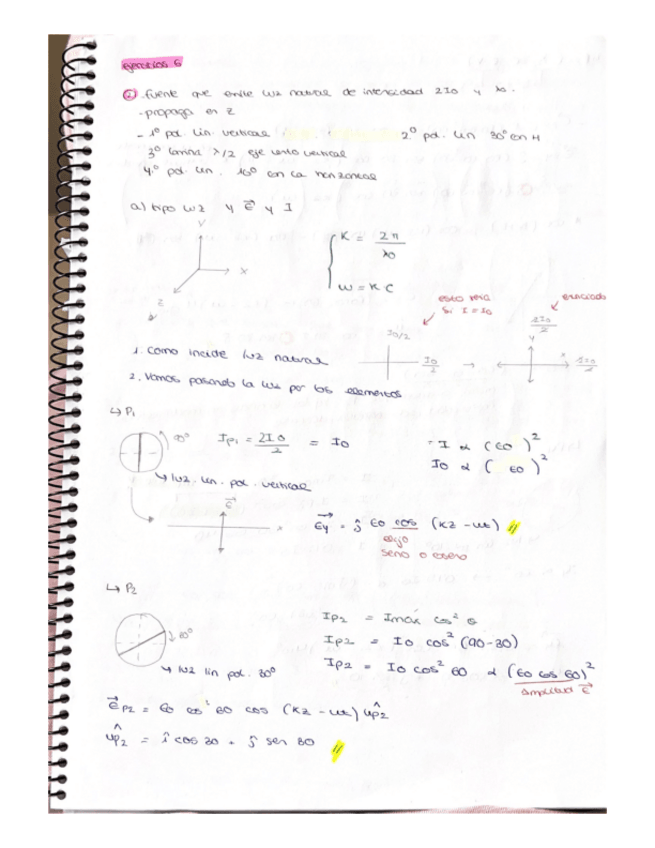 ejercicios 6
② - fuente que emite luz natural de intensidad 2I0 y λ0.
- propaga en z
- 1º pol. lin. vertical 2º pol. lin 30º con H
3º lamina λ/2 eje lento vertical
4º pol. lin. con la horizontal
a) tipo luz y E⃗ y I
Y
X
Z
K = 2π / λ0
W = K C
esto sería si I = I0
enunciado
I0/2
I0/2
→
2I0/2
y
x
2I0/2
1. Como incide luz natural
2. Vamos pasando la luz por los elementos
↳ P1
90º
IP1 = 2I0/2 = I0
- I α (E0)²
I0 α (E0)²
↳ luz. lin. pol. vertical
E⃗
x
E⃗y = ĵ E0 cos (Kz - wt) //
elijo
seno o coseno
↳ P2
30º
IP2 = Imáx cos² θ
IP2 = I0 cos² (90-30)
IP2 = I0 cos² 60 α (E0 cos 60)²
amplitud E⃗
↳ luz lin pol. 30º
E⃗P2 = E0 cos 60 cos (Kz - wt) ûP2
ûP2 = î cos 30 + ĵ sen 30 //